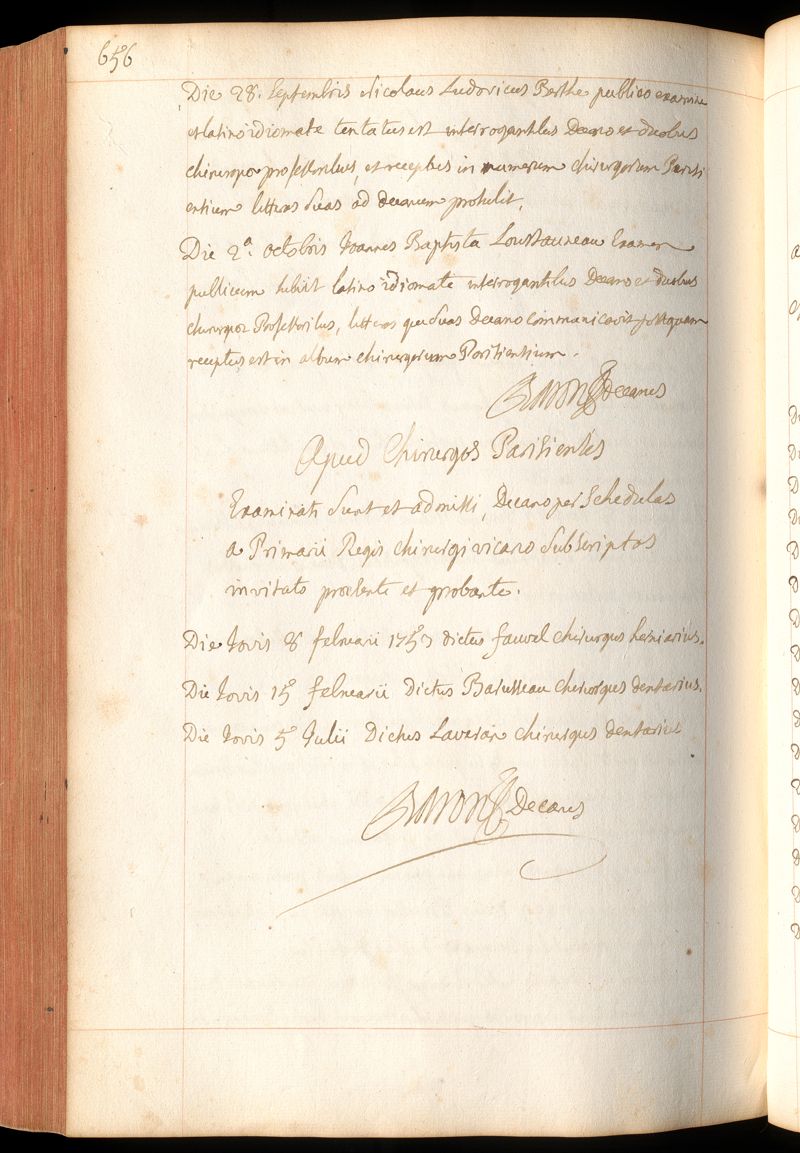 656
Die 28. Septembris Nicolaus Ludovicus Berthe publico examine
et latino idiomate tentatus est interrogantibus Decano et duobus
chirurgor professoribus, et receptus in numerum chirurgorum Parisi
ensium litteras suas ad decanum protulit.
Die 2a. octobris Joannes Baptista Loustauneau Examen
publicum habuit latino idiomate interrogantibus Decano et duobus
chirurgor Professoribus, litteras que suas Decano communicavit postquam
receptus est in album chirurgorum Parisiensium.
Baron Decanus
Apud Chirurgos Parisienses
Examinati sunt et admissi, Decano per Schedulas
a Primarii Regis chirurgi vicario subscriptas
invitato praesente et probante.
Die Jovis 8 februarii 1753 dictus fauvel chirurgus herniarius.
Die Jovis 15 februarii dictus Barusseau chirurgus dentarius.
Die Jovis 5 Julii Dictus Lavaran chirurgus dentarius
Baron Decanus